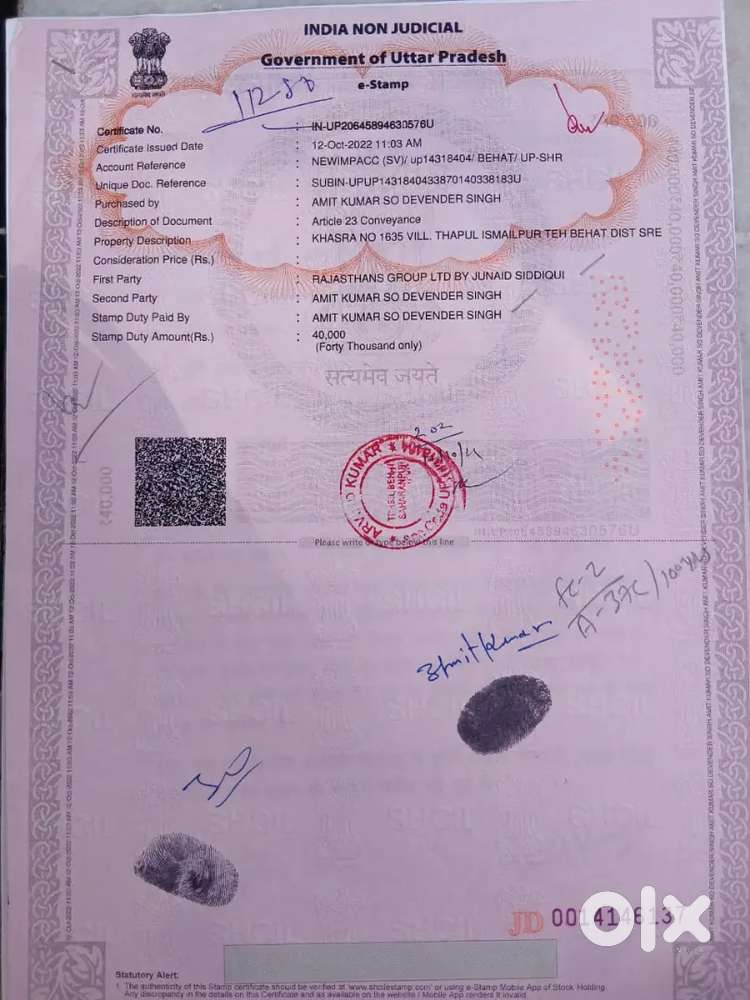 INDIA NON JUDICIAL
Government of Uttar Pradesh
e-Stamp
11280
₹40,000
Certificate No. : IN-UP20645894630576U
Certificate Issued Date : 12-Oct-2022 11:03 AM
Account Reference : NEWIMPACC (SV)/ up14318404/ BEHAT/ UP-SHR
Unique Doc. Reference : SUBIN-UPUP1431840433870140338183U
Purchased by : AMIT KUMAR SO DEVENDER SINGH
Description of Document : Article 23 Conveyance
Property Description : KHASRA NO 1635 VILL. THAPUL ISMAILPUR TEH BEHAT DIST SRE
Consideration Price (Rs.) :
First Party : RAJASTHANS GROUP LTD BY JUNAID SIDDIQUI
Second Party : AMIT KUMAR SO DEVENDER SINGH
Stamp Duty Paid By : AMIT KUMAR SO DEVENDER SINGH
Stamp Duty Amount(Rs.) : 40,000
(Forty Thousand only)
सत्यमेव जयते
₹40,000
SAHARANPUR
Please write or type below this line
A-37C/100
Amit Kumar
JD 0014146137
olx
Statutory Alert:
1. The authenticity of this Stamp certificate should be verified at 'www.shcilestamp.com' or using e-Stamp Mobile App of Stock Holding.
Any discrepancy in the details on this Certificate and as available on the website / Mobile App renders it invalid